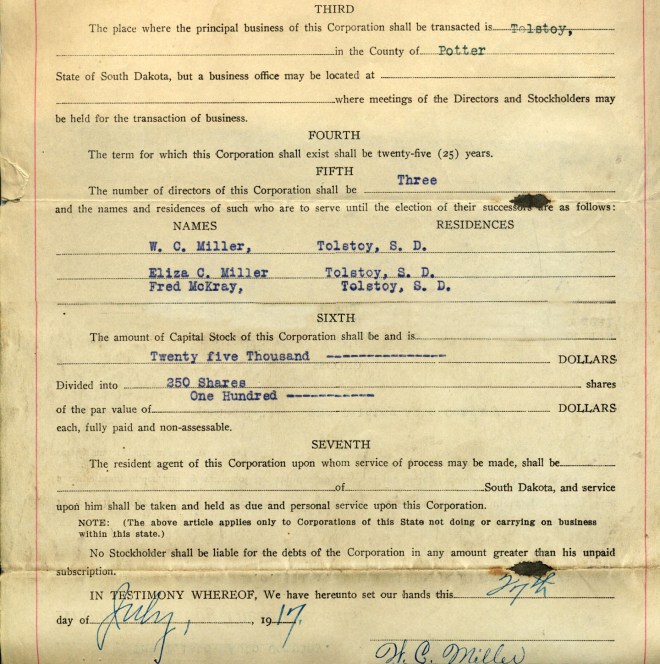 THIRD
The place where the principal business of this Corporation shall be transacted is Tolstoy,
in the County of Potter
State of South Dakota, but a business office may be located at
where meetings of the Directors and Stockholders may
be held for the transaction of business.
FOURTH
The term for which this Corporation shall exist shall be twenty-five (25) years.
FIFTH
The number of directors of this Corporation shall be Three
and the names and residences of such who are to serve until the election of their successors are as follows:
NAMES RESIDENCES
W. C. Miller, Tolstoy, S. D.
Eliza C. Miller Tolstoy, S. D.
Fred McKray, Tolstoy, S. D.
SIXTH
The amount of Capital Stock of this Corporation shall be and is
Twenty five Thousand --------------- DOLLARS
Divided into 250 Shares shares
One Hundred -----------
of the par value of DOLLARS
each, fully paid and non-assessable.
SEVENTH
The resident agent of this Corporation upon whom service of process may be made, shall be
of South Dakota, and service
upon him shall be taken and held as due and personal service upon this Corporation.
NOTE: (The above article applies only to Corporations of this State not doing or carrying on business
within this state.)
No Stockholder shall be liable for the debts of the Corporation in any amount greater than his unpaid
subscription.
IN TESTIMONY WHEREOF, We have hereunto set our hands this 27th
day of July, 1917.
W. C. Miller